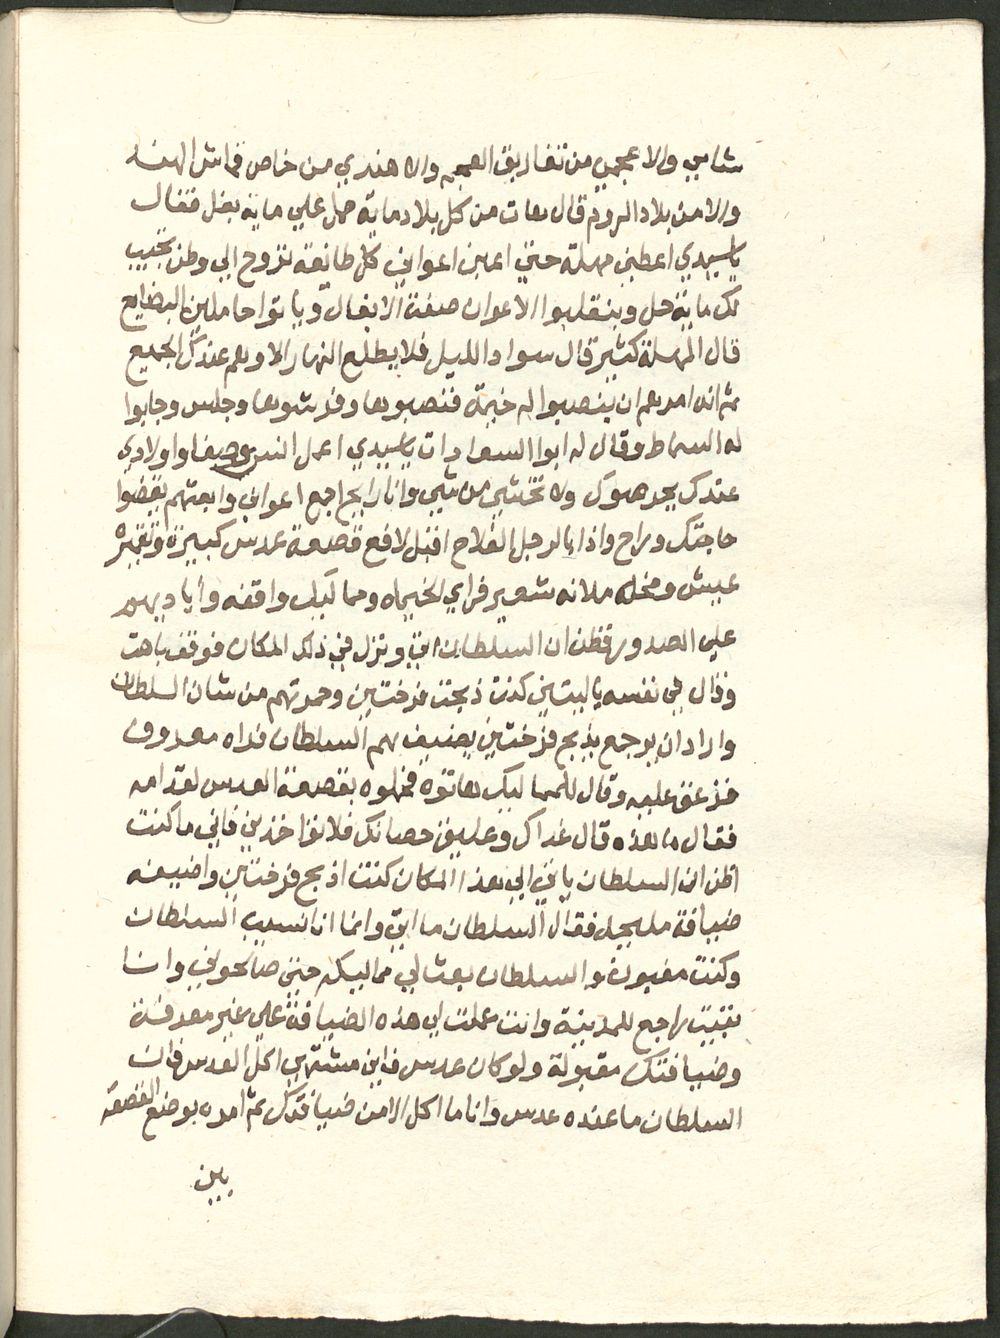 شامي والا عجمي من تفاريق العجم والا هندي من خاص قماش الهند
والا من بلاد الروم قال هات من كل بلاد ماية حمل علي ماية بغل فقال
يا سيدي اعطيني مهلة حتي اعين اعواني كل طائفة تروح الي وطن تجيب
لك ماية حمل وينقلبوا الاعوان صفة الابغال وياتوا حاملين البضايع
قال المهلة كثيرة قال سواد الليل فلا يطلع النهار الا وهم عندك الجميع
ثم انه امرهم ان ينصبوا له خيمة فنصبوها وفرشوها وجلس وجابوا
له السماط وقال له ابوا السعادات يا سيدي اعمل النسر وصفا واولادي
عندك يحرصوك ولا تختشي من شي وانا رايح اجمع اعواني وابعتهم يقضوا
حاجتك وراح واذا بالرجل الفلاح اقبل لافع قصعة عدس كبيرة وقفة
عيش ومخله ملانه شعير فراي الخيماه ومماليك واقفه وأياديهم
علي الصدور فظن ان السلطان اتي ونزل في ذلك المكان فوقف باهت
وقال في نفسه يا ليتني كنت ذبحت فرختين وحمرتهم من شان السلطان
واراد ان يرجع يذبح فرختين يضيف بهم السلطان فراه معروف
فزعق عليه وقال للمماليك هاتوه فحملوه بقصعة العدس لقدامه
فقال ما هذه قال غداك وعليق حصانك فلا تواخذني فاني ما كنت
اظن ان السلطان ياتي الي هذا المكان كنت اذبح فرختين واضيفه
ضيافة مليحه فقال السلطان ما اتي وانما انا نسيب السلطان
وكنت مغبون والسلطان بعت لي مماليكه حتي صالحوني وانا
بقيت راجع للمدينة وانت عملت لي هذه الضيافة علي غير معرفة
وضيافتك مقبولة ولو كان عدس فاني مشتهي اكل العدس فان
السلطان ما عنده عدس وانا ما اكل الا من ضيافتك ثم امره بوضع القصعة
بين